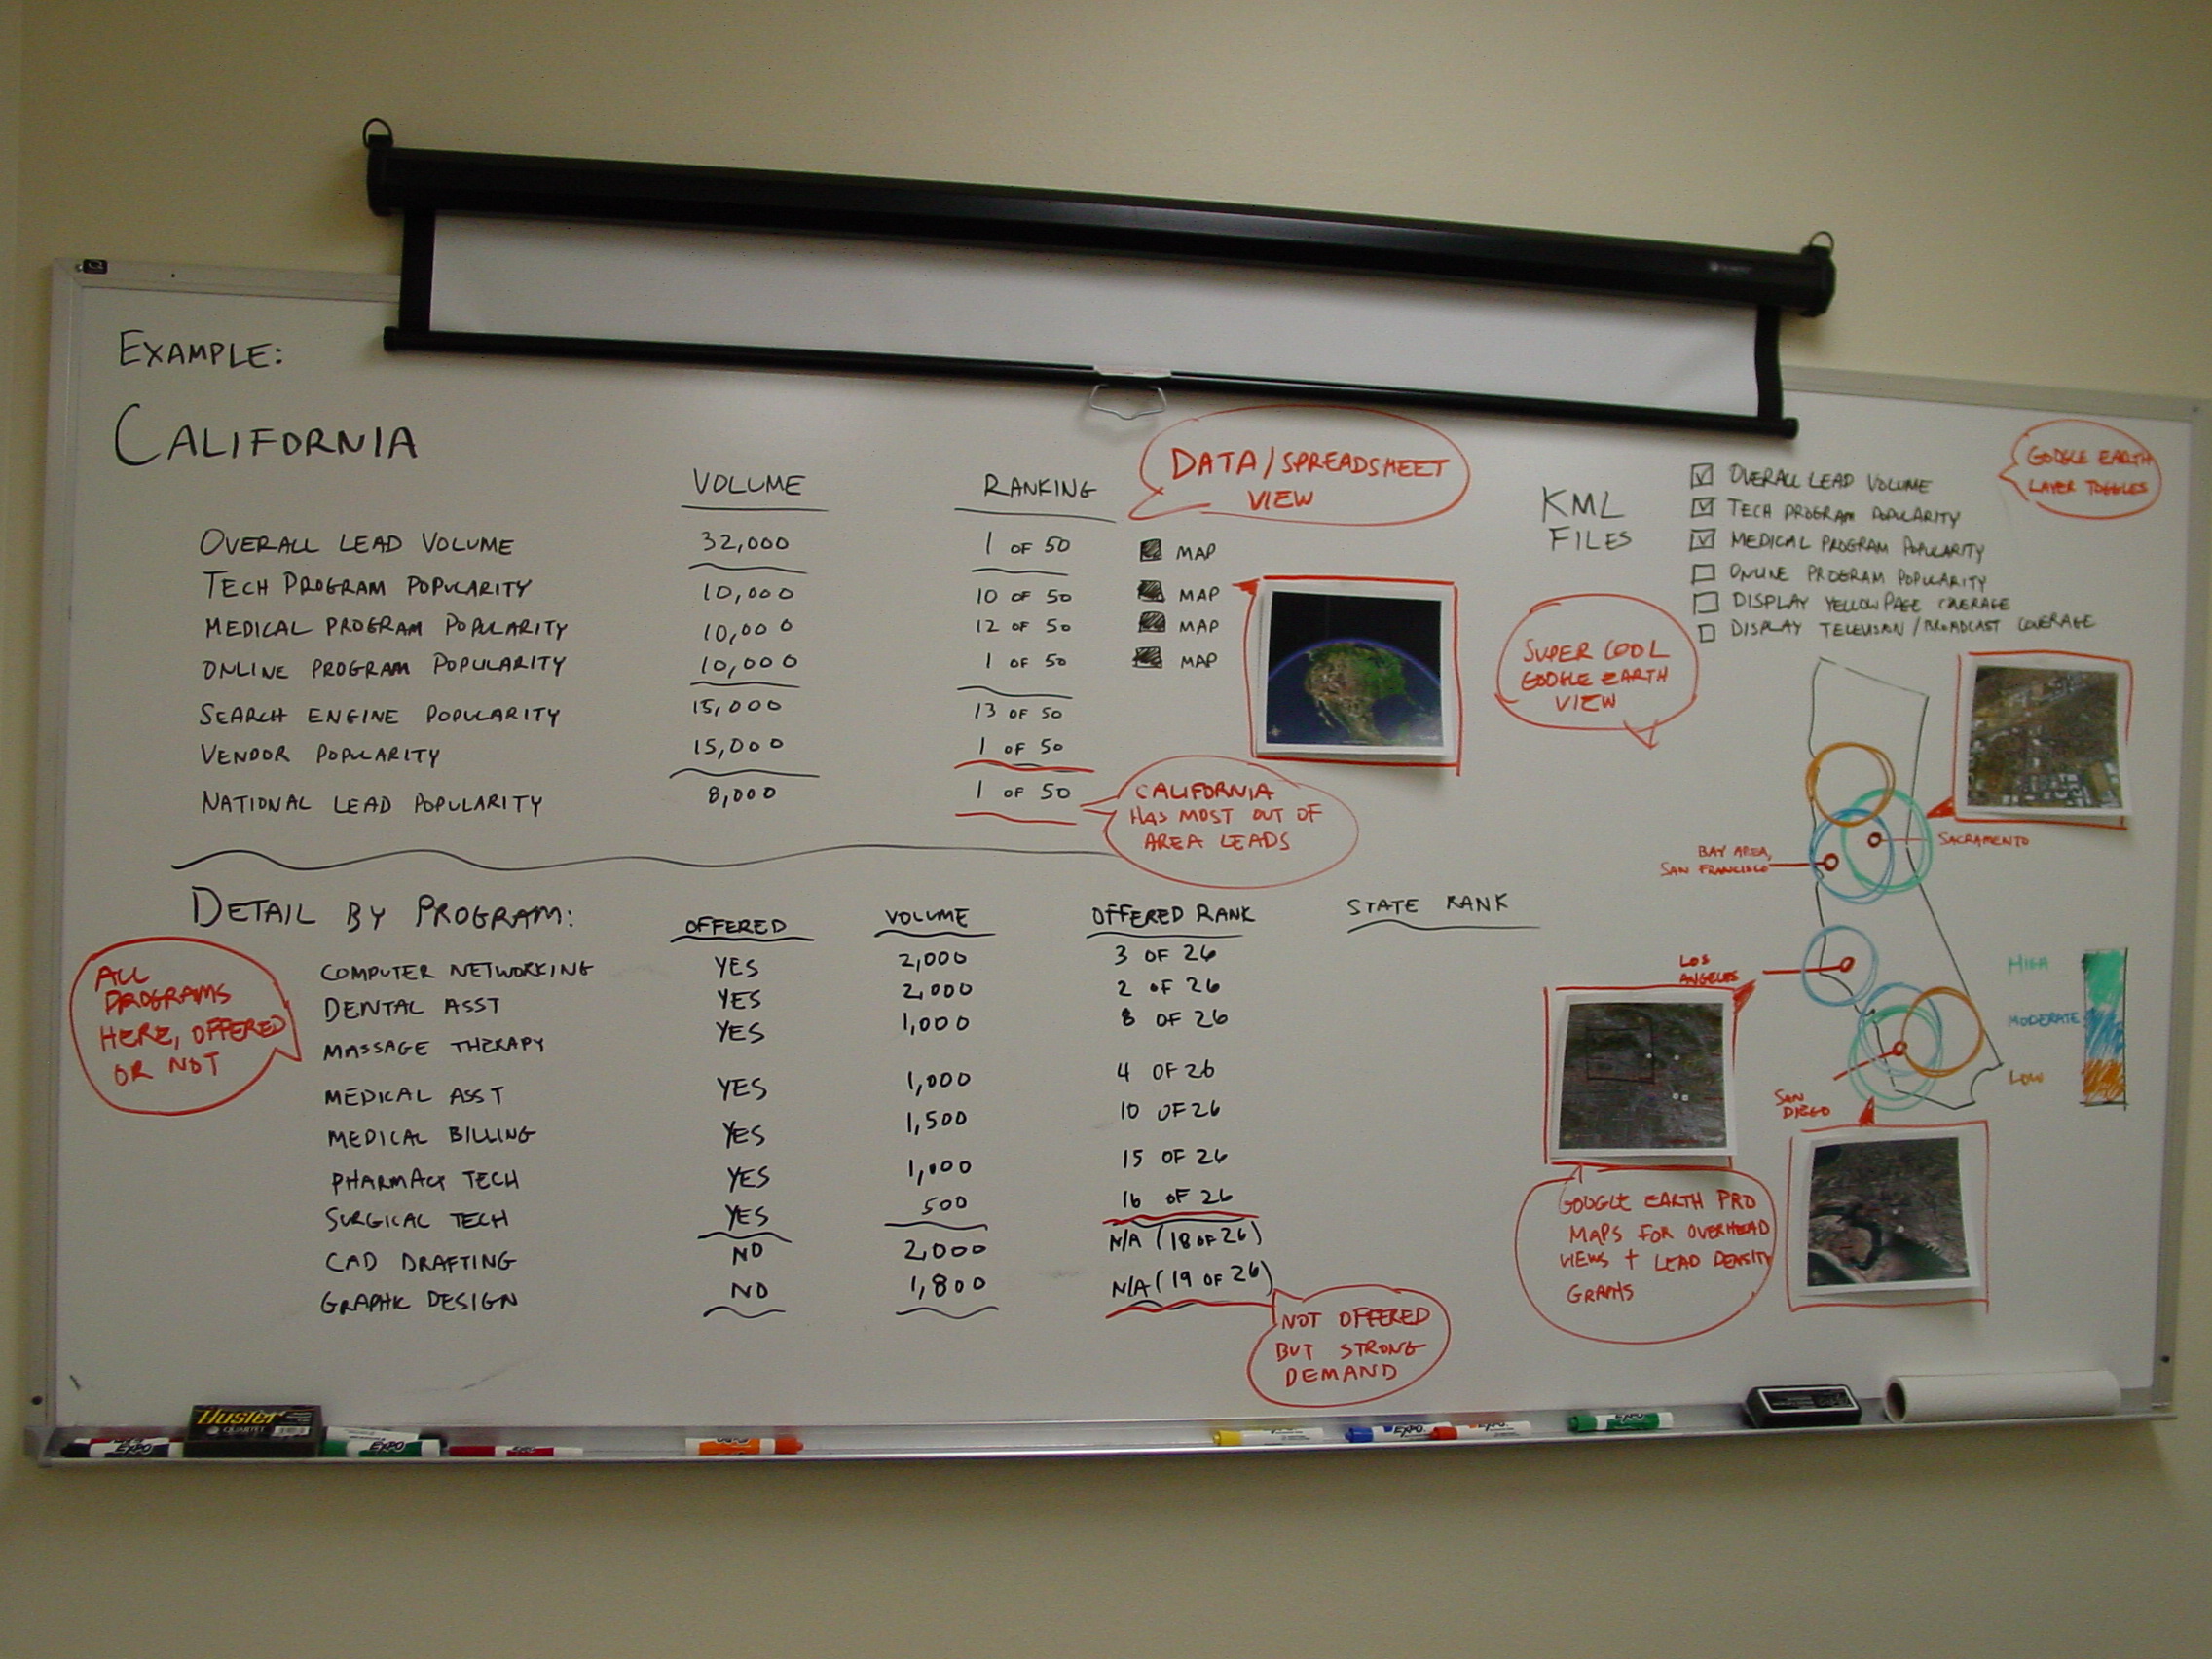 EXAMPLE:
CALIFORNIA
VOLUME RANKING
OVERALL LEAD VOLUME 32,000 1 OF 50 MAP
TECH PROGRAM POPULARITY 10,000 10 OF 50 MAP
MEDICAL PROGRAM POPULARITY 10,000 12 OF 50 MAP
ONLINE PROGRAM POPULARITY 10,000 1 OF 50 MAP
SEARCH ENGINE POPULARITY 15,000 13 OF 50
VENDOR POPULARITY 15,000 1 OF 50
NATIONAL LEAD POPULARITY 8,000 1 OF 50
DATA/SPREADSHEET
VIEW
CALIFORNIA
HAS MOST OUT OF
AREA LEADS
DETAIL BY PROGRAM: OFFERED VOLUME OFFERED RANK STATE RANK
COMPUTER NETWORKING YES 2,000 3 OF 26
DENTAL ASST YES 2,000 2 OF 26
MASSAGE THERAPY YES 1,000 8 OF 26
MEDICAL ASST YES 1,000 4 OF 26
MEDICAL BILLING YES 1,500 10 OF 26
PHARMACY TECH YES 1,000 15 OF 26
SURGICAL TECH YES 500 16 OF 26
CAD DRAFTING NO 2,000 N/A (18 OF 26)
GRAPHIC DESIGN NO 1,800 N/A (19 OF 26)
ALL
PROGRAMS
HERE, OFFERED
OR NOT
NOT OFFERED
BUT STRONG
DEMAND
KML
FILES
OVERALL LEAD VOLUME
TECH PROGRAM POPULARITY
MEDICAL PROGRAM POPULARITY
ONLINE PROGRAM POPULARITY
DISPLAY YELLOW PAGE COVERAGE
DISPLAY TELEVISION/BROADCAST COVERAGE
GOOGLE EARTH
LAYER TOGGLES
SUPER COOL
GOOGLE EARTH
VIEW
SACRAMENTO
BAY AREA,
SAN FRANCISCO
LOS
ANGELES
SAN
DIEGO
HIGH
MODERATE
LOW
GOOGLE EARTH PRO
MAPS FOR OVERHEAD
VIEWS + LEAD DENSITY
GRAPHS
Duster
QUARTET
EXPO
EXPO
EXPO
EXPO